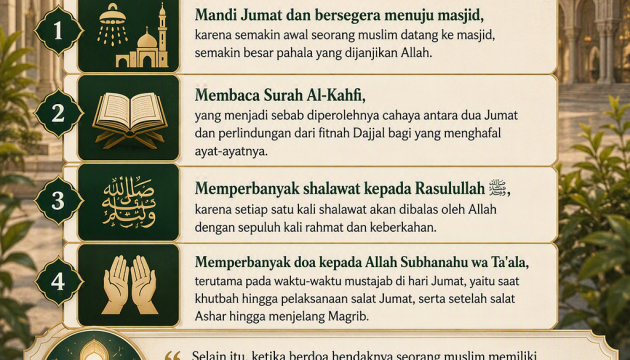 1
Mandi Jumat dan bersegera menuju masjid,
karena semakin awal seorang muslim datang ke masjid,
semakin besar pahala yang dijanjikan Allah.
2
Membaca Surah Al-Kahfi,
yang menjadi sebab diperolehnya cahaya antara dua Jumat
dan perlindungan dari fitnah Dajjal bagi yang menghafal
ayat-ayatnya.
3
Memperbanyak shalawat kepada Rasulullah ﷺ,
karena setiap satu kali shalawat akan dibalas oleh Allah
dengan sepuluh kali rahmat dan keberkahan.
4
Memperbanyak doa kepada Allah Subhanahu wa Ta'ala,
terutama pada waktu-waktu mustajab di hari Jumat, yaitu saat
khutbah hingga pelaksanaan salat Jumat, serta setelah salat
Ashar hingga menjelang Magrib.
“ Selain itu, ketika berdoa hendaknya seorang muslim memiliki